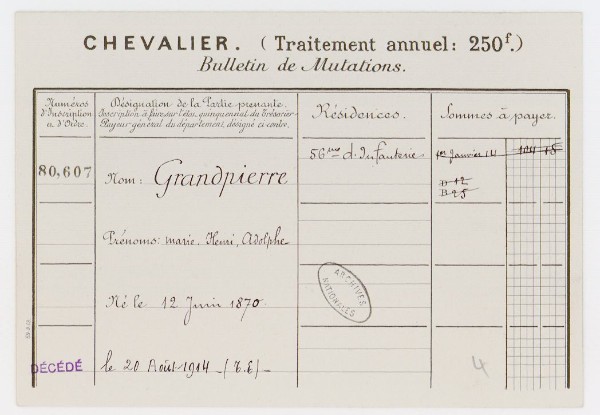 CHEVALIER. (Traitement annuel: 250f.)
Bulletin de Mutations.
Numéros d'Inscription et d'Ordre.
Désignation de la Partie prenante.
Inscription à faire sur l'état quinquennal du Trésorier-
Payeur général du département désigné ci contre.
Résidences.
Sommes à payer.
80,607
Nom: Grandpierre
56me d'Infanterie
1er Janvier 14
104 15
D 12
B 25
Prénoms: Marie, Henri, Adolphe
ARCHIVES NATIONALES
Né le 12 Juin 1870
DÉCÉDÉ
le 20 Août 1914 - (T.C) -
4